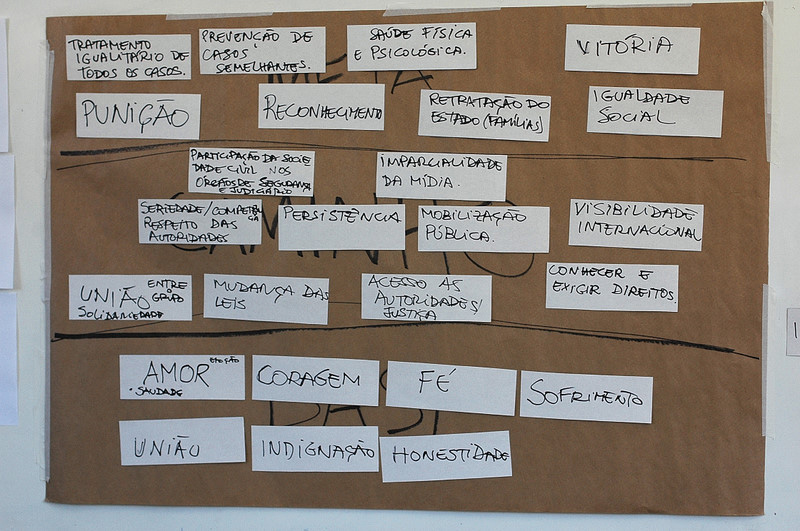 TRATAMENTO
IGUALITÁRIO DE
TODOS OS CASOS.
PREVENÇÃO DE
CASOS
SEMELHANTES.
SAÚDE FÍSICA
E PSICOLÓGICA.
VITÓRIA
META
PUNIÇÃO
RECONHECIMENTO
RETRATAÇÃO DO
ESTADO (FAMÍLIAS)
IGUALDADE
SOCIAL
PARTICIPAÇÃO DA SOCIE
DADE CIVIL NOS
ÓRGÃOS DE SEGURANÇA
E JUDICIÁRIO
IMPARCIALIDADE
DA MÍDIA.
CAMINHO
SERIEDADE/COMPETÊN
CIA
RESPEITO DAS
AUTORIDADES
PERSISTÊNCIA
MOBILIZAÇÃO
PÚBLICA.
VISIBILIDADE
INTERNACIONAL
UNIÃO ENTRE
O GRUPO
SOLIDARIEDADE
MUDANÇA DAS
LEIS
ACESSO AS
AUTORIDADES/
JUSTIÇA
CONHECER E
EXIGIR DIREITOS.
EMOÇÃO
AMOR
• SAUDADE
CORAGEM
FÉ
SOFRIMENTO
BASE
UNIÃO
INDIGNAÇÃO
HONESTIDADE